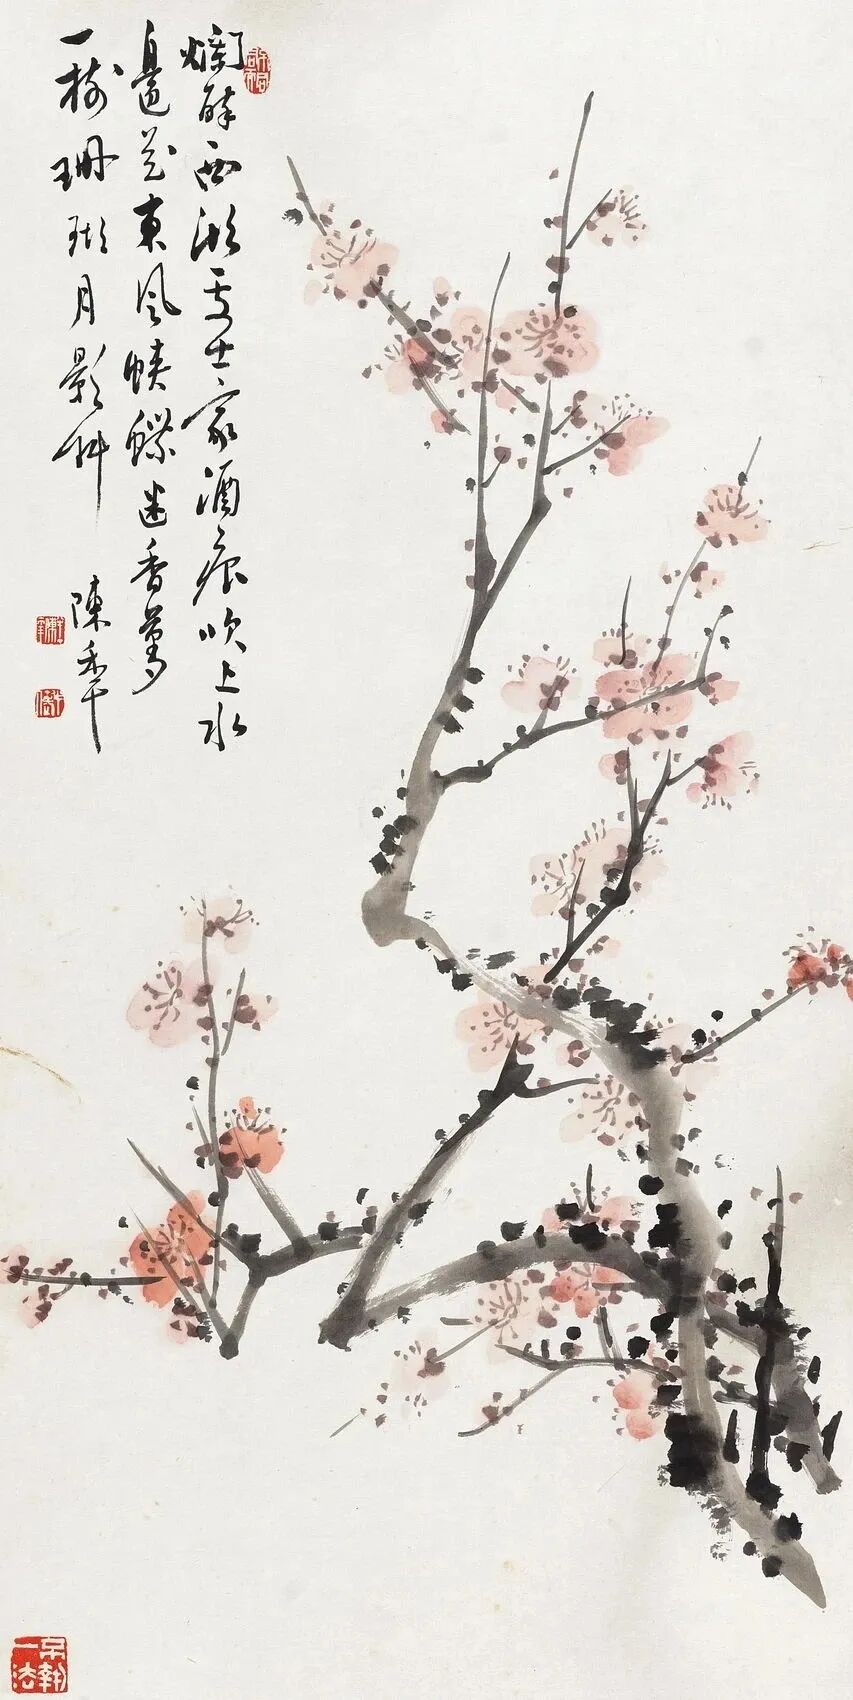 爛醉西湖處士家酒痕吹上水
邊花東風蛺蝶迷香夢
一樹珊瑚月影斜
陳秊
不執一法